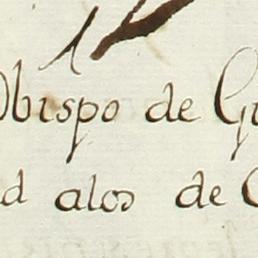 Obispo de Gu
d alos de C